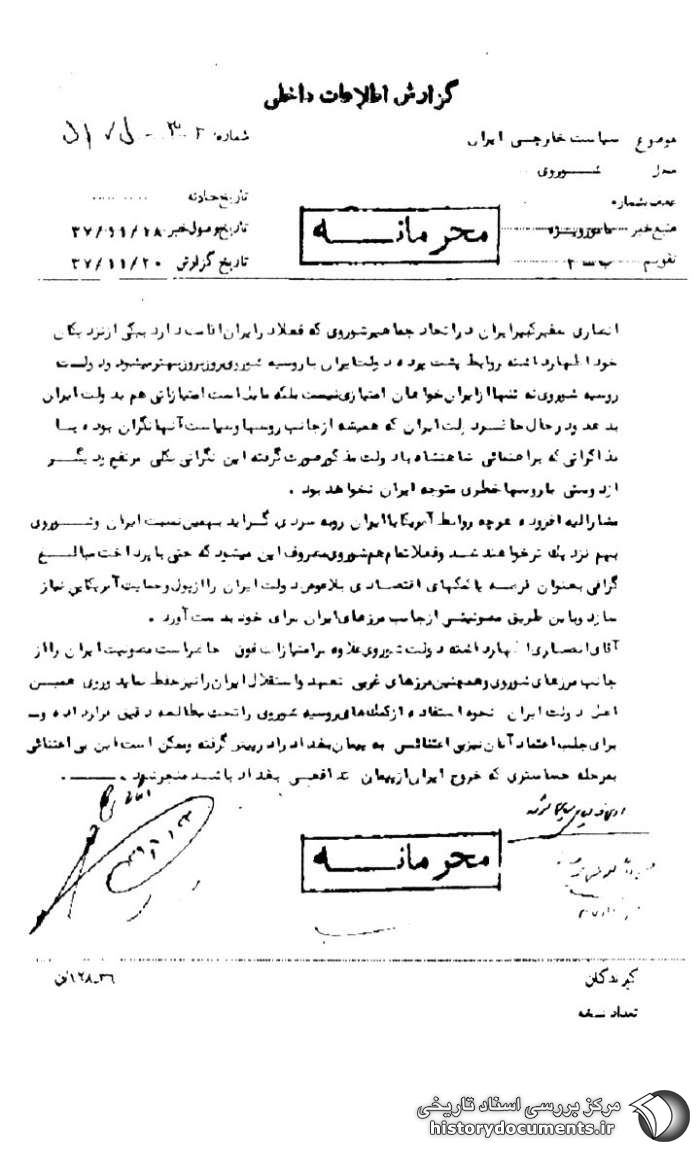 گزارش اطلاعات داخلی
موضوع سیاست خارجی ایران
شماره:
محل شوروی
عطف بشماره
تاریخ حادثه
منبع خبر مامور ویژه
محرمانه
تاریخ وصول خبر ۳۷/۱۱/۱۸
تقویم ب ـ ۲
تاریخ گزارش ۳۷/۱۱/۲۰
انصاری سفیر کبیر ایران در اتحاد جماهیر شوروی که فعلا در ایران اقامت دارد بیکی از نزدیکان
خود اظهار داشته روابط پشت پرده دولت ایران با روسیه شوروی روز بروز بهتر میشود و دولت
روسیه شوروی نه تنها از ایران خواهان امتیازی نیست بلکه مایل است امتیازاتی هم بدولت ایران
بدهد و در حال حاضر دولت ایران که همیشه از جانب روسها و سیاست آنها نگران بوده با
مذاکراتی که براهنمائی شاهنشاه با دولت مذکور صورت گرفته این نگرانی بکلی مرتفع و دیگر
از دوستی با روسها خطری متوجه ایران نخواهد بود .
مشارالیه افزوده هرچه روابط آمریکا با ایران رو به سردی گراید بهمین نسبت ایران و شوروی
بهم نزدیک تر خواهند شد و فعلا تمام هم شوروی مصروف این میشود که حتی با پرداخت مبالغ
گزافی بعنوان قرضه یا کمکهای اقتصادی بلاعوض دولت ایران را از پول و حمایت آمریکا بی نیاز
سازد و باین طریق مصونیتی از جانب مرزهای ایران برای خود بدست آورد .
آقای انصاری اظهار داشته دولت شوروی علاوه بر امتیازات فوق حاضر است مصونیت ایران را از
جانب مرزهای شوروی و همچنین مرزهای غربی تعهد و استقلال ایران را نیز حفظ نماید و روی همین
اصل دولت ایران نحوه استفاده از کمک های روسیه شوروی را تحت مطالعه دقیق قرار داده و
برای جلب اعتماد آنان نیز بی اعتنائی به پیمان بغداد را در پیش گرفته و ممکن است این بی اعتنائی
بمرحله حساستری که خروج ایران از پیمان تدافعی بغداد باشد منجر شود .
محرمانه
گیرندگان
۳۶-۱۲۸/ن
تعداد نسخه
مرکز بررسی اسناد تاریخی
historydocuments.ir